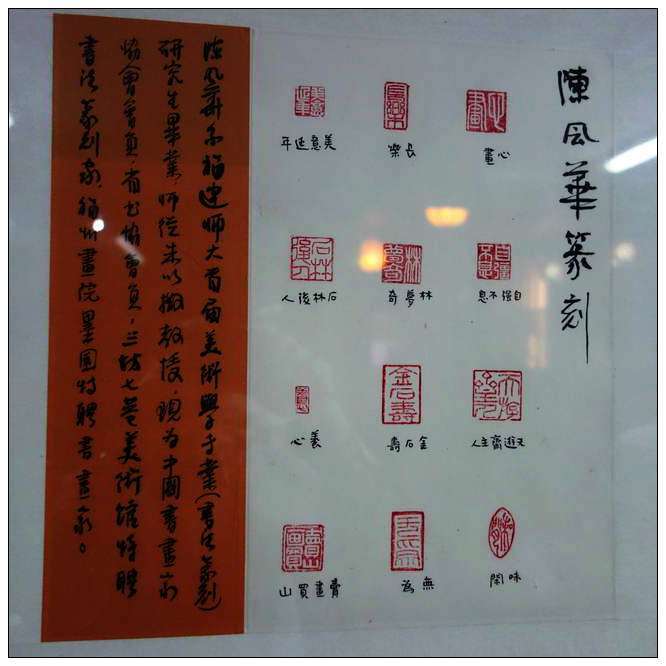 陳风華篆刻
心畫
長樂
美意延年
自强不息
林夢奇
石林後人
天遊齋主人
金石壽
養心
味閑
無為
賣畫買山
陈风華于福建师大首届美術學专業(書法篆刻)
研究生畢業，师從朱以撒教授，現为中國書畫家
協會會員，省书協會員，三坊七巷美術館特聘
書法篆刻家，福州畫院墨园特聘書畫家。